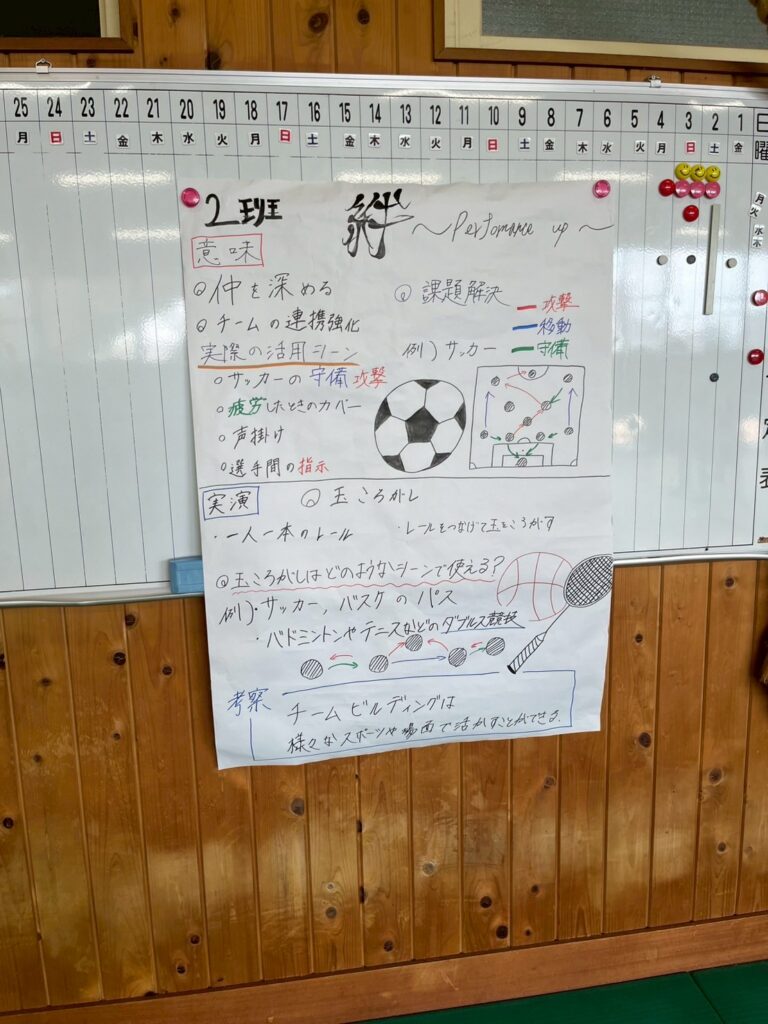 25 24 23 22 21 20 19 18 17 16 15 14 13 12 11 10 9 8 7 6 5 4 3 2 1 日
月 日 土 金 木 水 火 月 日 土 金 木 水 火 月 日 土 金 木 水 火 月 日 土 金 曜
月
火
水
木
定
表
2班 絆 〜Perfomance up〜
意味
◎仲を深める
◎チームの連携強化
◎課題解決
実際の活用シーン
○サッカーの守備攻撃
○疲労したときのカバー
○声掛け
○選手間の指示
攻撃
移動
守備
例)サッカー
実演 ◎玉ころがし
・一人一本のレール ・レールをつなげて玉をころがす
◎玉ころがしはどのようなシーンで使える?
例)・サッカー,バスケのパス
・バドミントンやテニスなどのダブルス競技
考察
チームビルディングは
様々なスポーツや場面で活かすことができる.